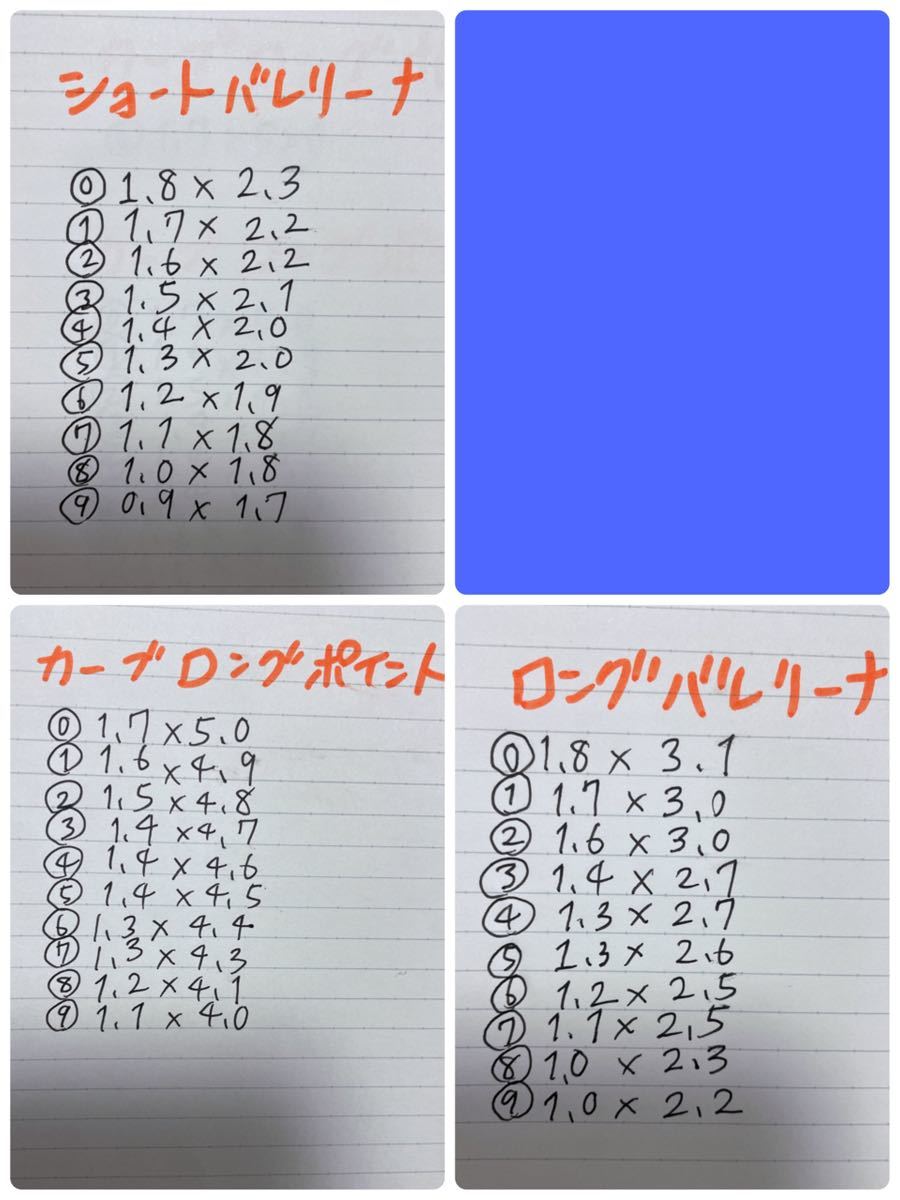 ショートバレリーナ
⓪ 1.8 × 2.3
① 1.7 × 2.2
② 1.6 × 2.2
③ 1.5 × 2.1
④ 1.4 × 2.0
⑤ 1.3 × 2.0
⑥ 1.2 × 1.9
⑦ 1.1 × 1.8
⑧ 1.0 × 1.8
⑨ 0.9 × 1.7
カーブロングポイント
⓪ 1.7 × 5.0
① 1.6 × 4.9
② 1.5 × 4.8
③ 1.4 × 4.7
④ 1.4 × 4.6
⑤ 1.4 × 4.5
⑥ 1.3 × 4.4
⑦ 1.3 × 4.3
⑧ 1.2 × 4.1
⑨ 1.1 × 4.0
ロングバレリーナ
⓪ 1.8 × 3.1
① 1.7 × 3.0
② 1.6 × 3.0
③ 1.4 × 2.7
④ 1.3 × 2.7
⑤ 1.3 × 2.6
⑥ 1.2 × 2.5
⑦ 1.1 × 2.5
⑧ 1.0 × 2.3
⑨ 1.0 × 2.2